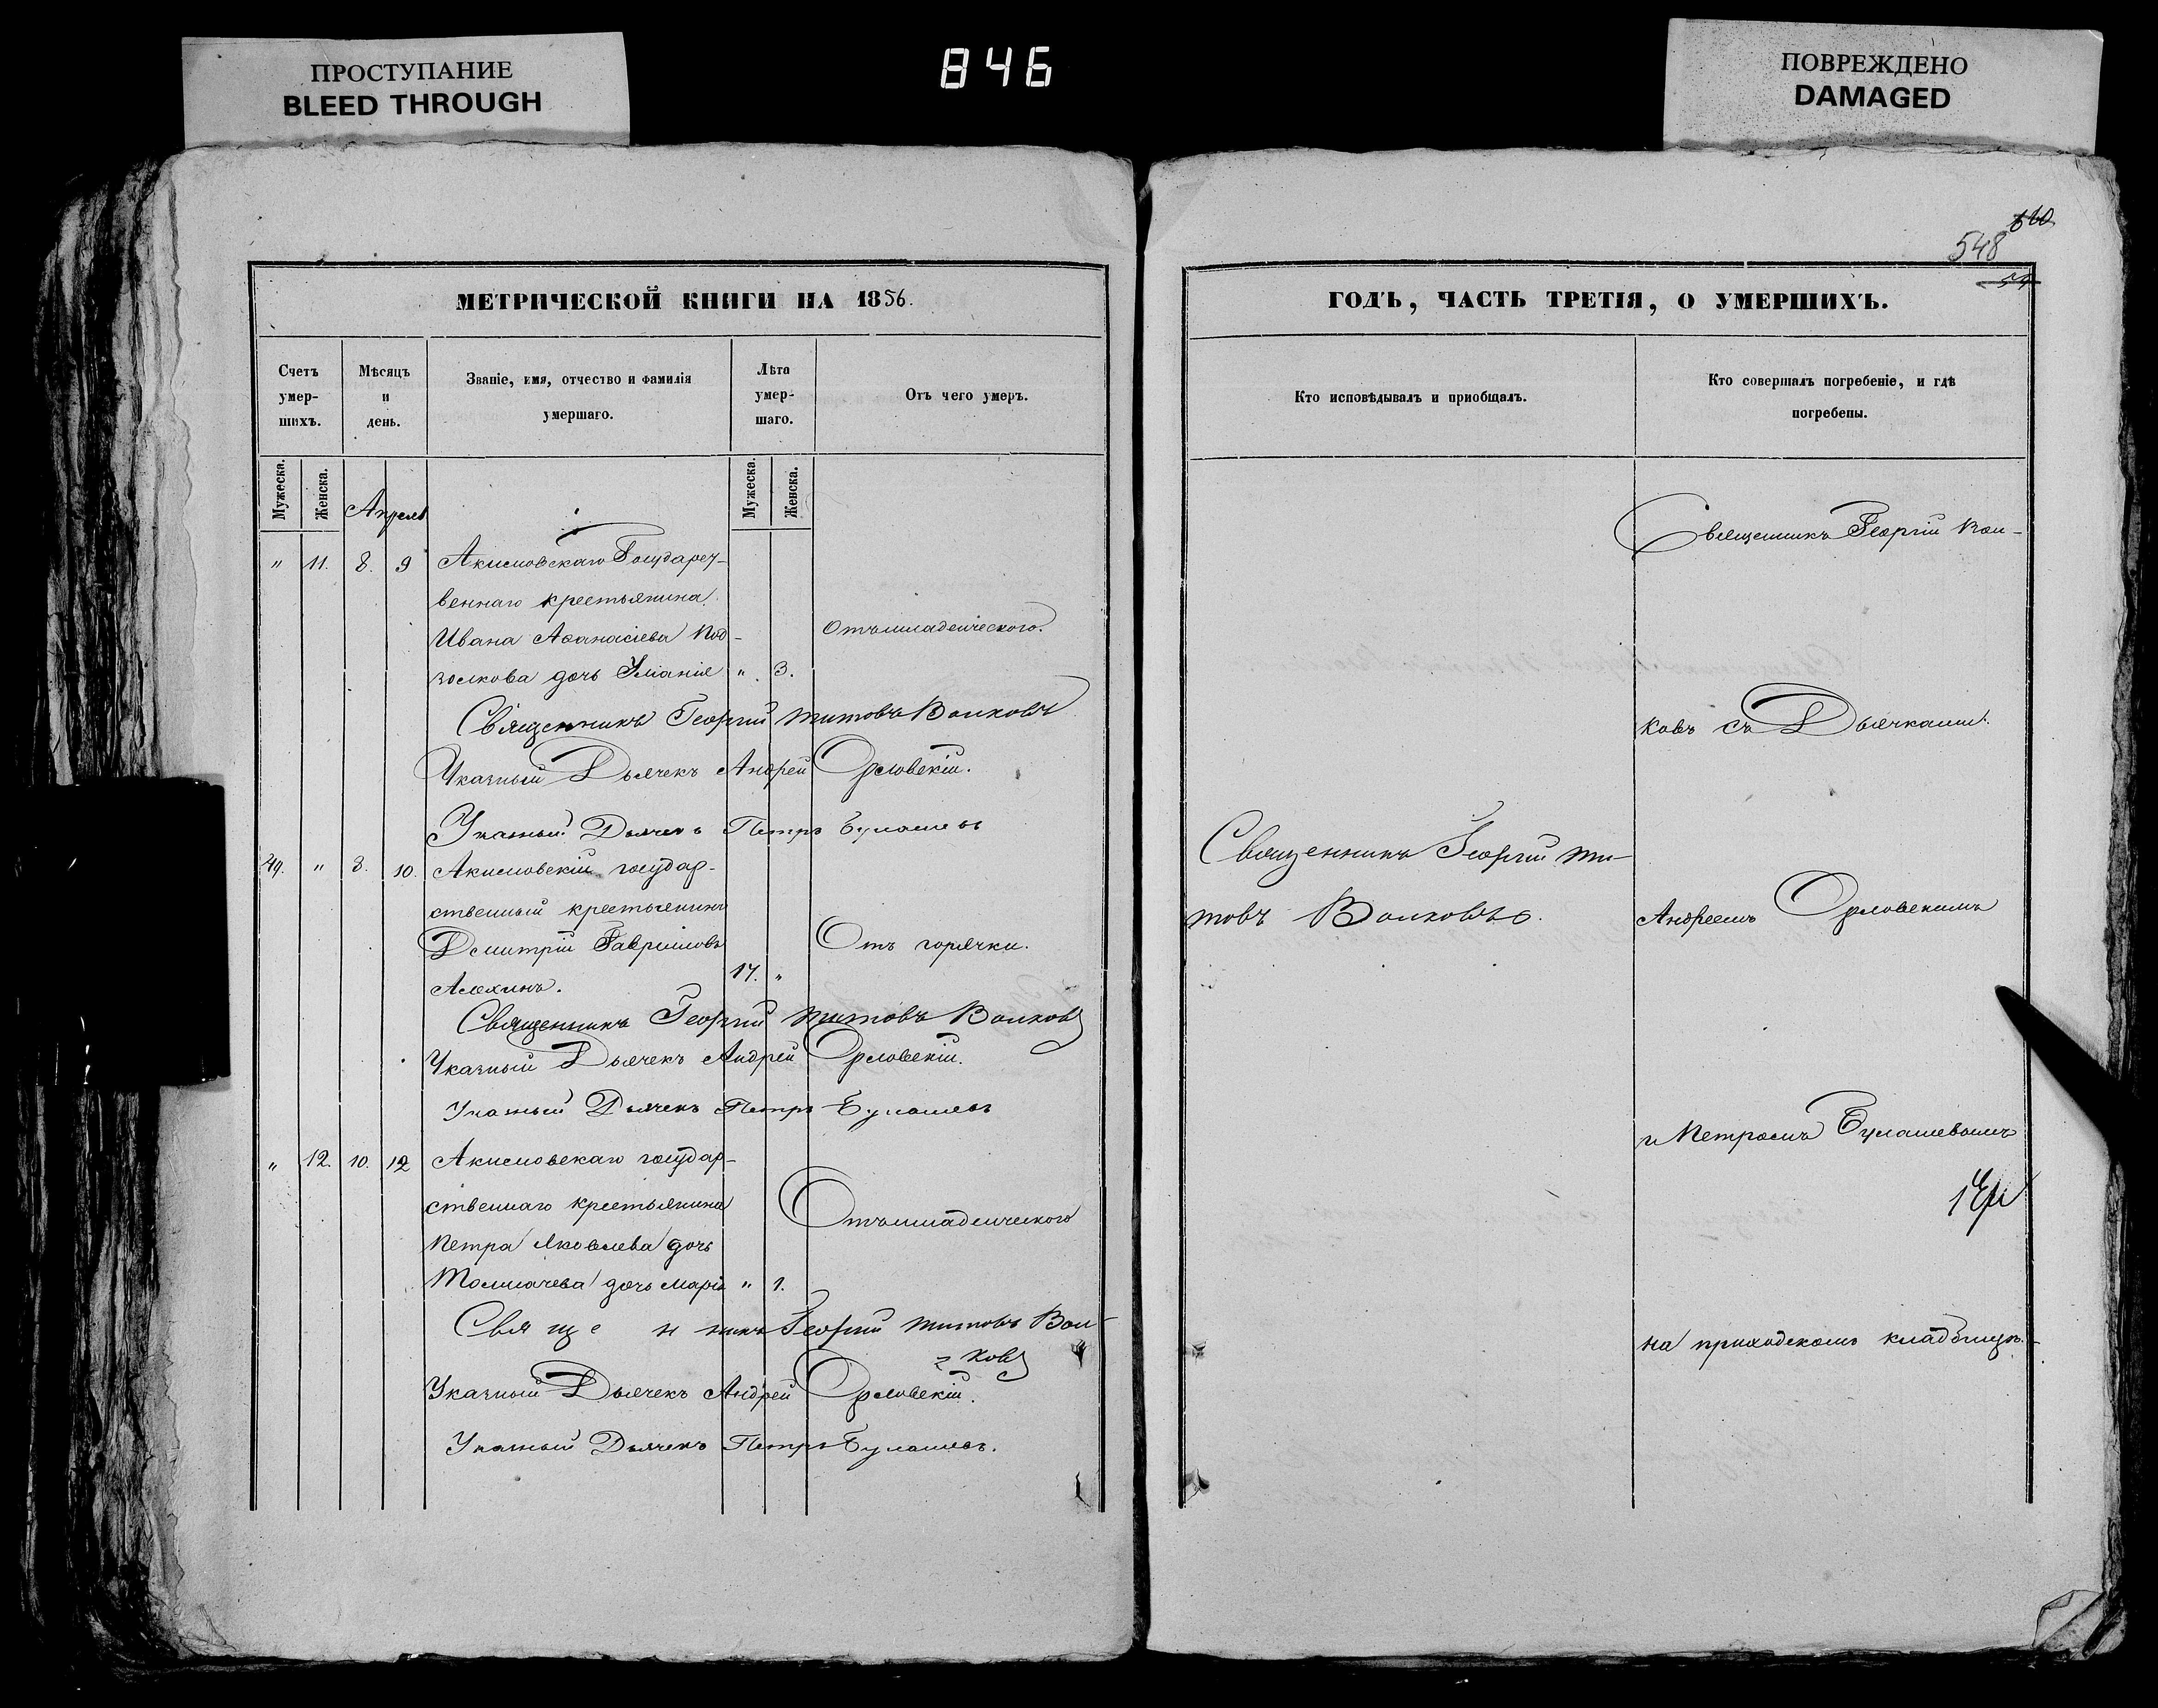 ПРОСТУПАНИЕ
BLEED THROUGH
846
ПОВРЕЖДЕНО
DAMAGED
МЕТРИЧЕСКОЙ КНИГИ НА 1856.
Счетъ умер-шихъ.
Мѣсяцъ и день.
Званіе, имя, отчество и фамилія умершаго.
Лѣта умер-шаго.
Отъ чего умеръ.
Мужеска. Женска.
Апрель
Мужеска. Женска.
" 11. 8. 9 Акисмовскаго Государст-
веннаго крестьянина
Ивана Аѳанасіева Под-
Отъ младенческаго.
золкова дочь Уліанія " 3.
Священникъ Георгій Титовъ Волковъ
Указный Дьячекъ Андрей Орловскій.
Указный Дьячекъ Петръ Булашевъ
" 8. 10. Акисмовскій государ-
ственный крестьянинъ
Дмитрій Гавриловъ
Отъ горячки.
Алехинъ. 17. "
Священникъ Георгій Титовъ Волковъ
Указный Дьячекъ Андрей Орловскій.
Указный Дьячекъ Петръ Булашевъ
" 12. 10. 12 Акисмовскаго государ-
ственнаго крестьянина
Отъ младенческаго
Петра Яковлева дочь
Толмачева дочь Марія " 1.
Священникъ Георгій Титовъ Вол-
ковъ
Указный Дьячекъ Андрей Орловскій.
Указный Дьячекъ Петръ Булашевъ.
548
ГОДЪ, ЧАСТЬ ТРЕТІЯ, О УМЕРШИХЪ.
Кто исповѣдывалъ и пріобщалъ.
Кто совершалъ погребеніе, и гдѣ погребены.
Священникъ Георгій Вол-
ковъ съ Дьячками
Священникъ Георгій Ти-
товъ Волковъ.
Андреемъ Орловскимъ
и Петромъ Булашевымъ
на приходскомъ кладбищѣ.